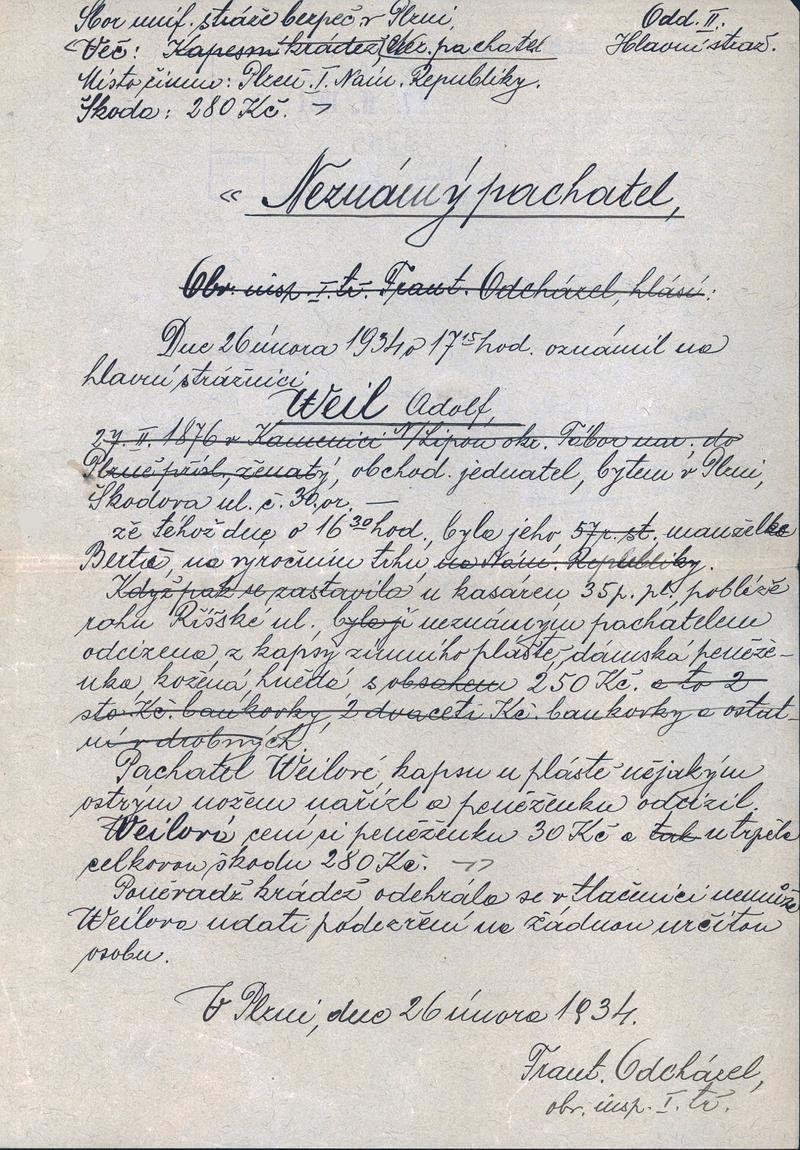 Sbor unif. stráže bezpeč. v Plzni, Odd. II.
Věc: Kapesní krádež, Nez. pachatel Hlavní straž.
Místo činu: Plzeň. I. Nám. Republiky.
Škoda: 280 Kč.
« Neznámý pachatel,
Obr. insp. I. tř. Frant. Odcházel, hlásí:
Dne 26 února 1934 o 17¹⁵ hod. oznámil na
hlavní strážnici
Weil Adolf,
27. II. 1876 v Kamenici N/Lipou okr. Tábor nar. do
Plzně přísl., ženatý, obchod. jednatel, bytem v Plzni,
Škodova ul. č. 30. or. —
že téhož dne o 16³⁰ hod., byla jeho 57 r. st. manželka
Berta, na výročním trhu na Nám. Republiky.
Když pak se zastavila u kasáren 35 p. pl., poblíže
rohu Říšské ul. byla jí neznámým pachatelem
odcizena z kapsy zimního pláště, dámská peněžen-
ka, kožená, hnědá s obsahem 250 Kč. a to 2
sto Kč. bankovky, 2 dvaceti Kč. bankovky a ostat-
ní v drobných.
Pachatel Weilové kapsu u pláště nějakým
ostrým nožem nařízl a peněženku odcizil.
Weilová cení si peněženku 30 Kč a tak utrpěla
celkovou škodu 280 Kč.
Poněvadž krádež odehrála se v tlačenici nemůže
Weilova udati podezření na žádnou určitou
osobu.
V Plzni, dne 26 února 1934.
Frant. Odcházel,
obr. insp. I. tř.